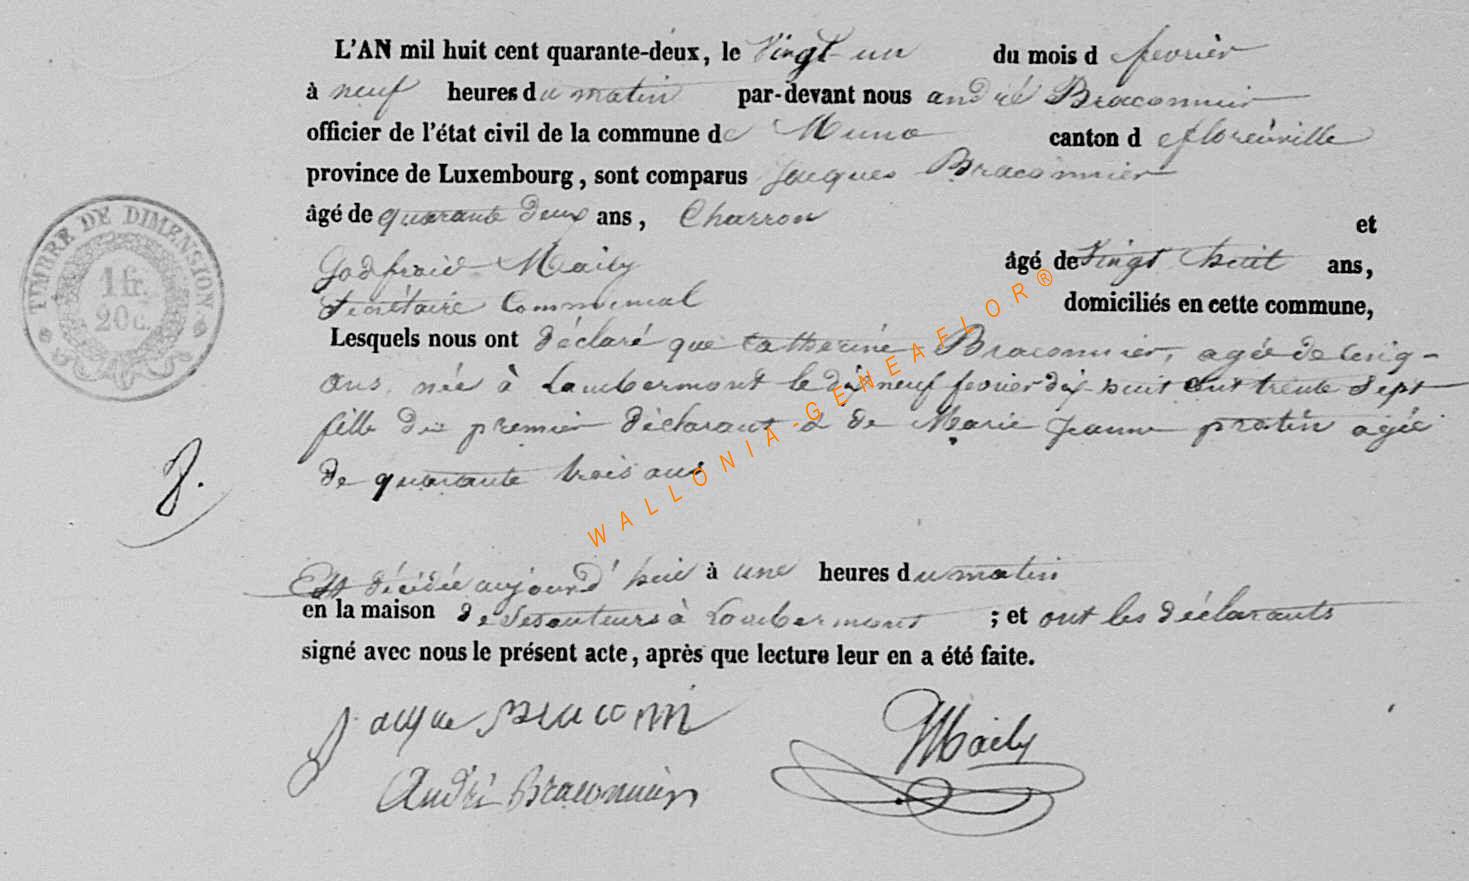 L'AN mil huit cent quarante-deux, le Vingt un du mois d e fevrier
à neuf heures du matin par-devant nous andré Braconnier
officier de l'état civil de la commune de Muno canton d e florenville
province de Luxembourg, sont comparus Jacques Braconnier
âgé de quarante deux ans, Charron et
Godfroid Maily âgé de Vingt huit ans,
Secrétaire Communal domiciliés en cette commune,
Lesquels nous ont déclaré que Catherine Braconnier, agée de cinq
ans, née à Lambermont le dix neuf fevrier dix huit cent trente sept
fille du premier déclarant & de Marie Jeanne pratin agée
de quarante trois ans
8.
Est décédée aujourd'hui à une heures du matin
en la maison de ses auteurs à Lambermont ; et ont les déclarants
signé avec nous le présent acte, après que lecture leur en a été faite.
Jacque Braconni
Maily
André Braconnier
TIMBRE DE DIMENSION
1 fr.
20 c.
WALLONIA-GENEAFLOR®